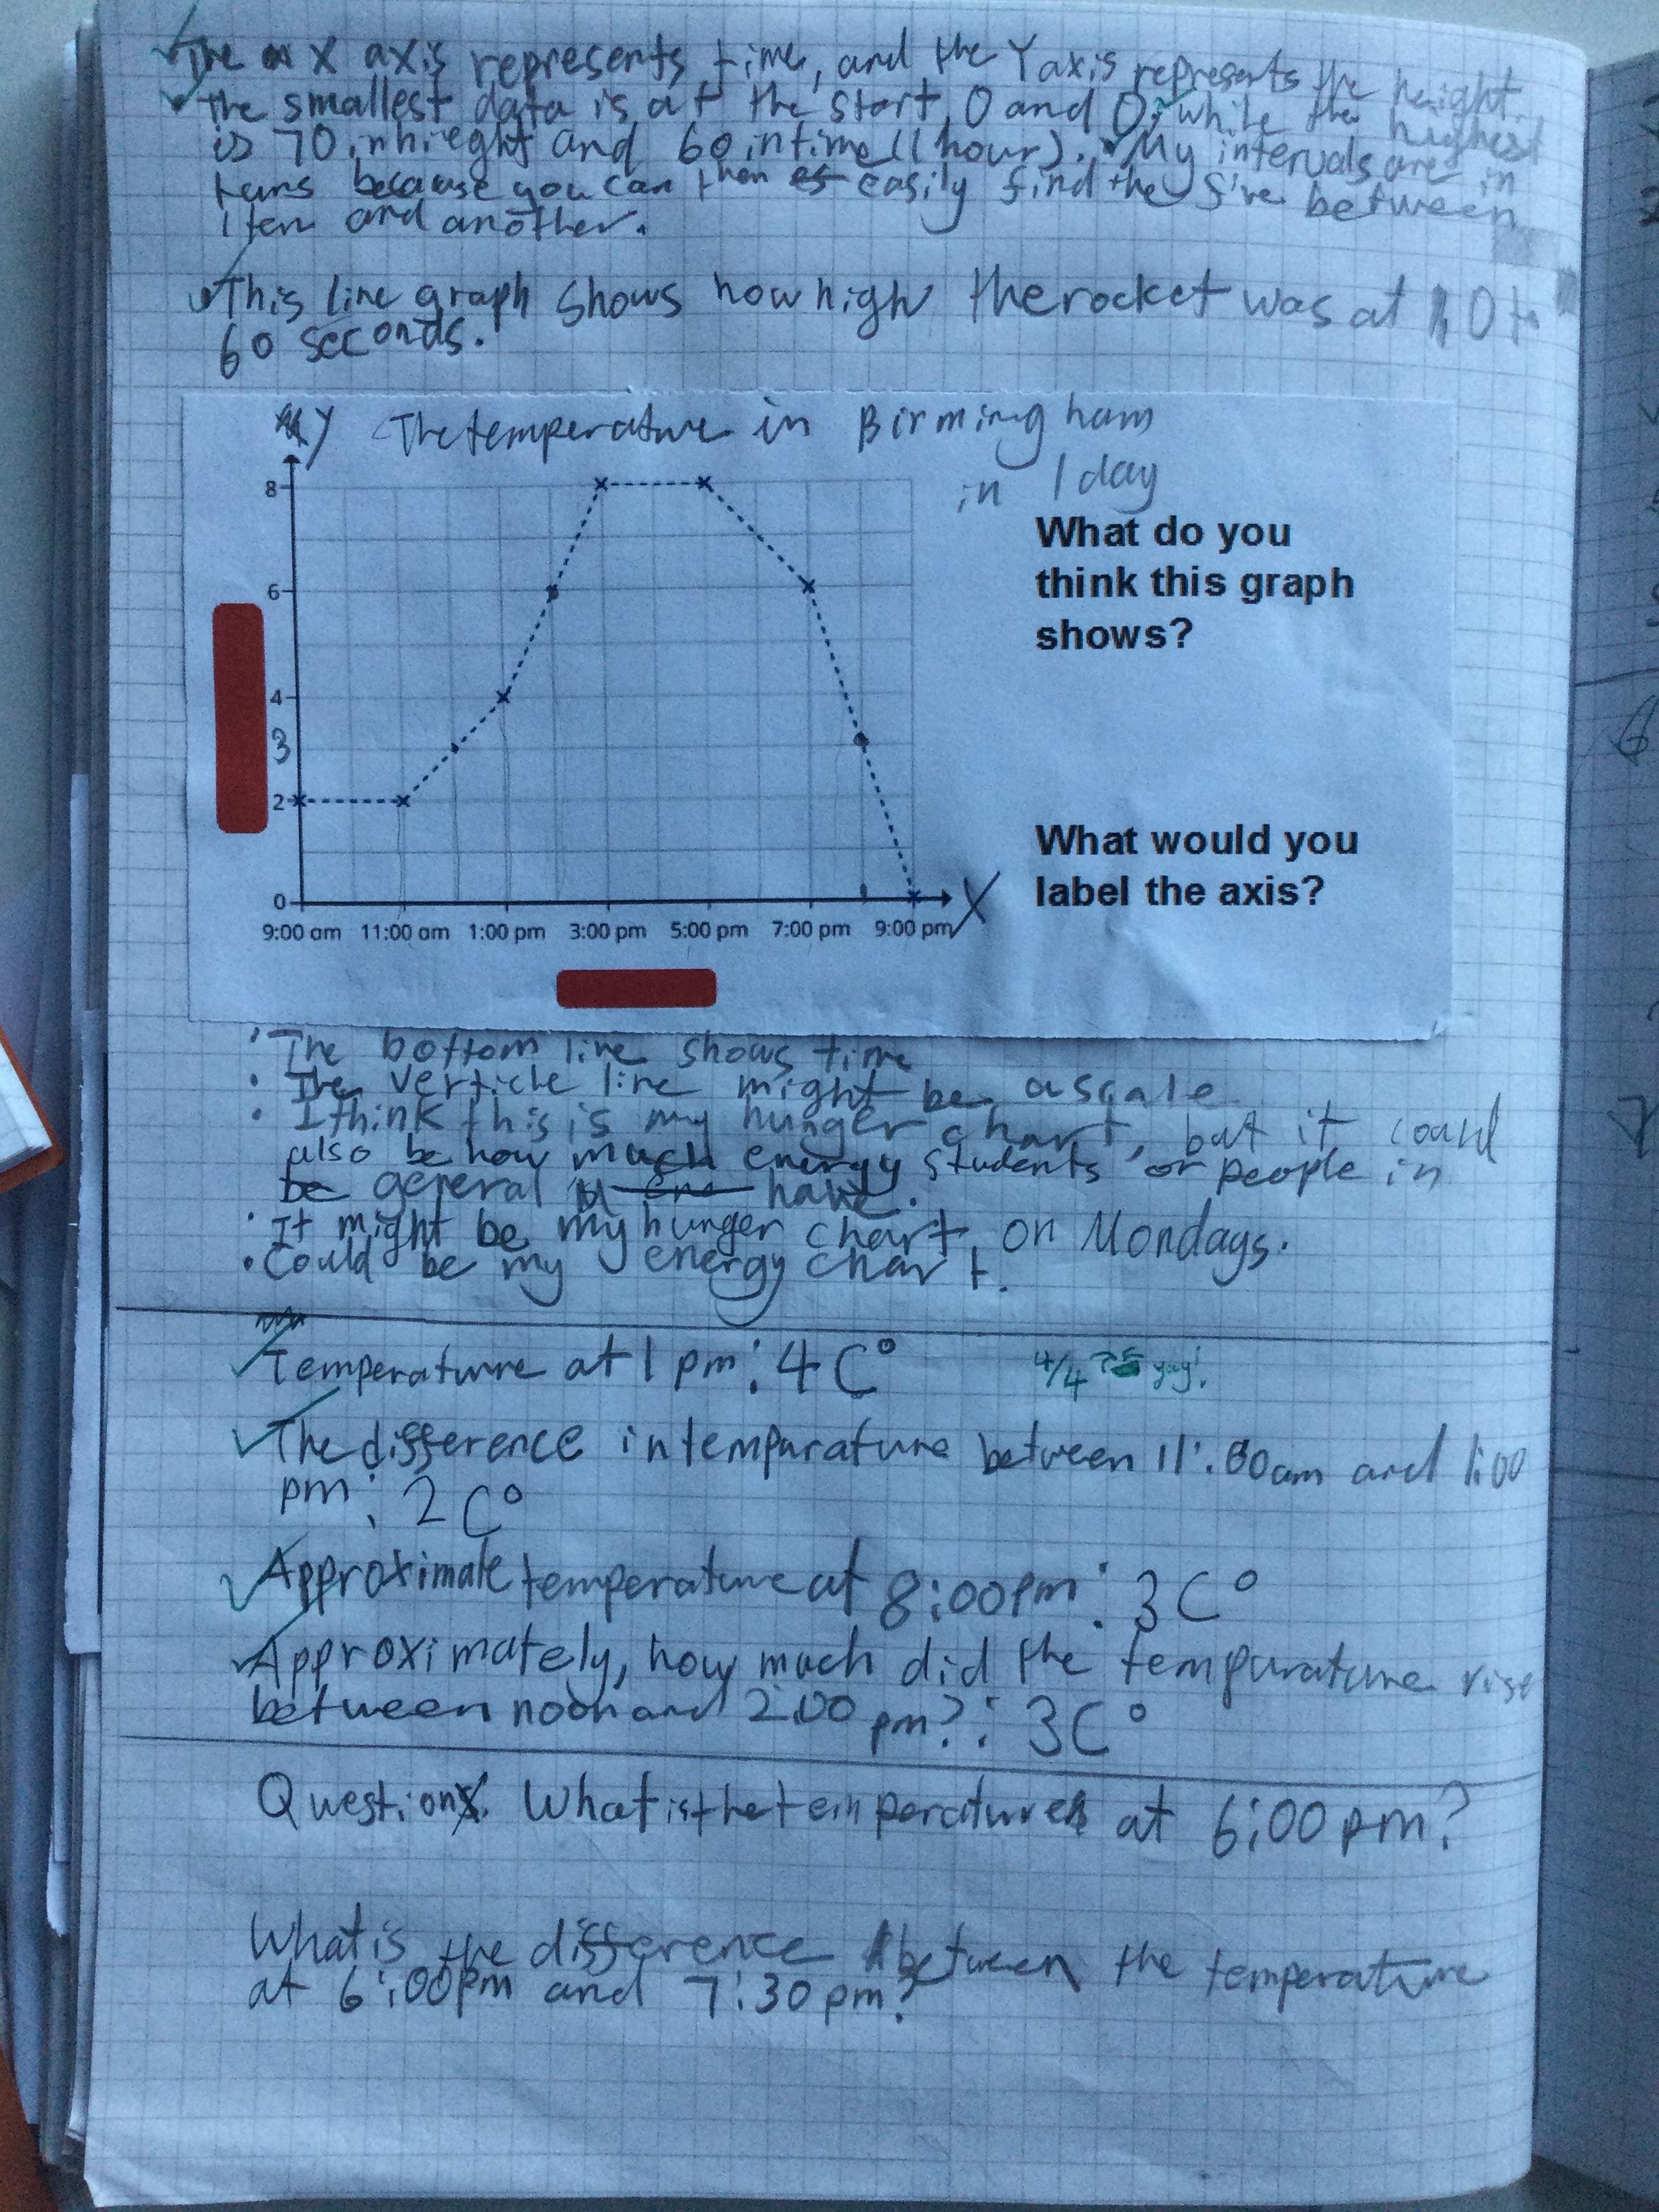 The x axis represents time, and the Y axis represents the height.
The smallest data is at the start, 0 and 0, while the highest
is 70 in hieght and 60 in time (1 hour). My intervals are in
tens because you can then easily find the five between
1 ten and another.
This line graph shows how high the rocket was at 10 to
60 seconds.
Y The temperature in Birmingham
in 1 day
What do you
think this graph
shows?
What would you
label the axis?
8
6
4
3
2
0
9:00 am 11:00 am 1:00 pm 3:00 pm 5:00 pm 7:00 pm 9:00 pm X
• The bottom line shows time
• The verticle line might be a scale
• I think this is my hunger chart, but it could
also be how much energy students or people in
be general have.
• It might be my hunger chart on Mondays.
• Could be my energy chart.
Temperature at 1 pm: 4 C°
4/4 yay!
The difference in temparature between 11:00am and 1:00
pm: 2 C°
Approximate temperature at 8:00pm: 3 C°
Approximately, how much did the temparature rise
between noon and 2:00 pm?: 3C°
Question What is the temperature at 6:00 pm?
What is the difference between the temperature
at 6:00pm and 7:30pm?